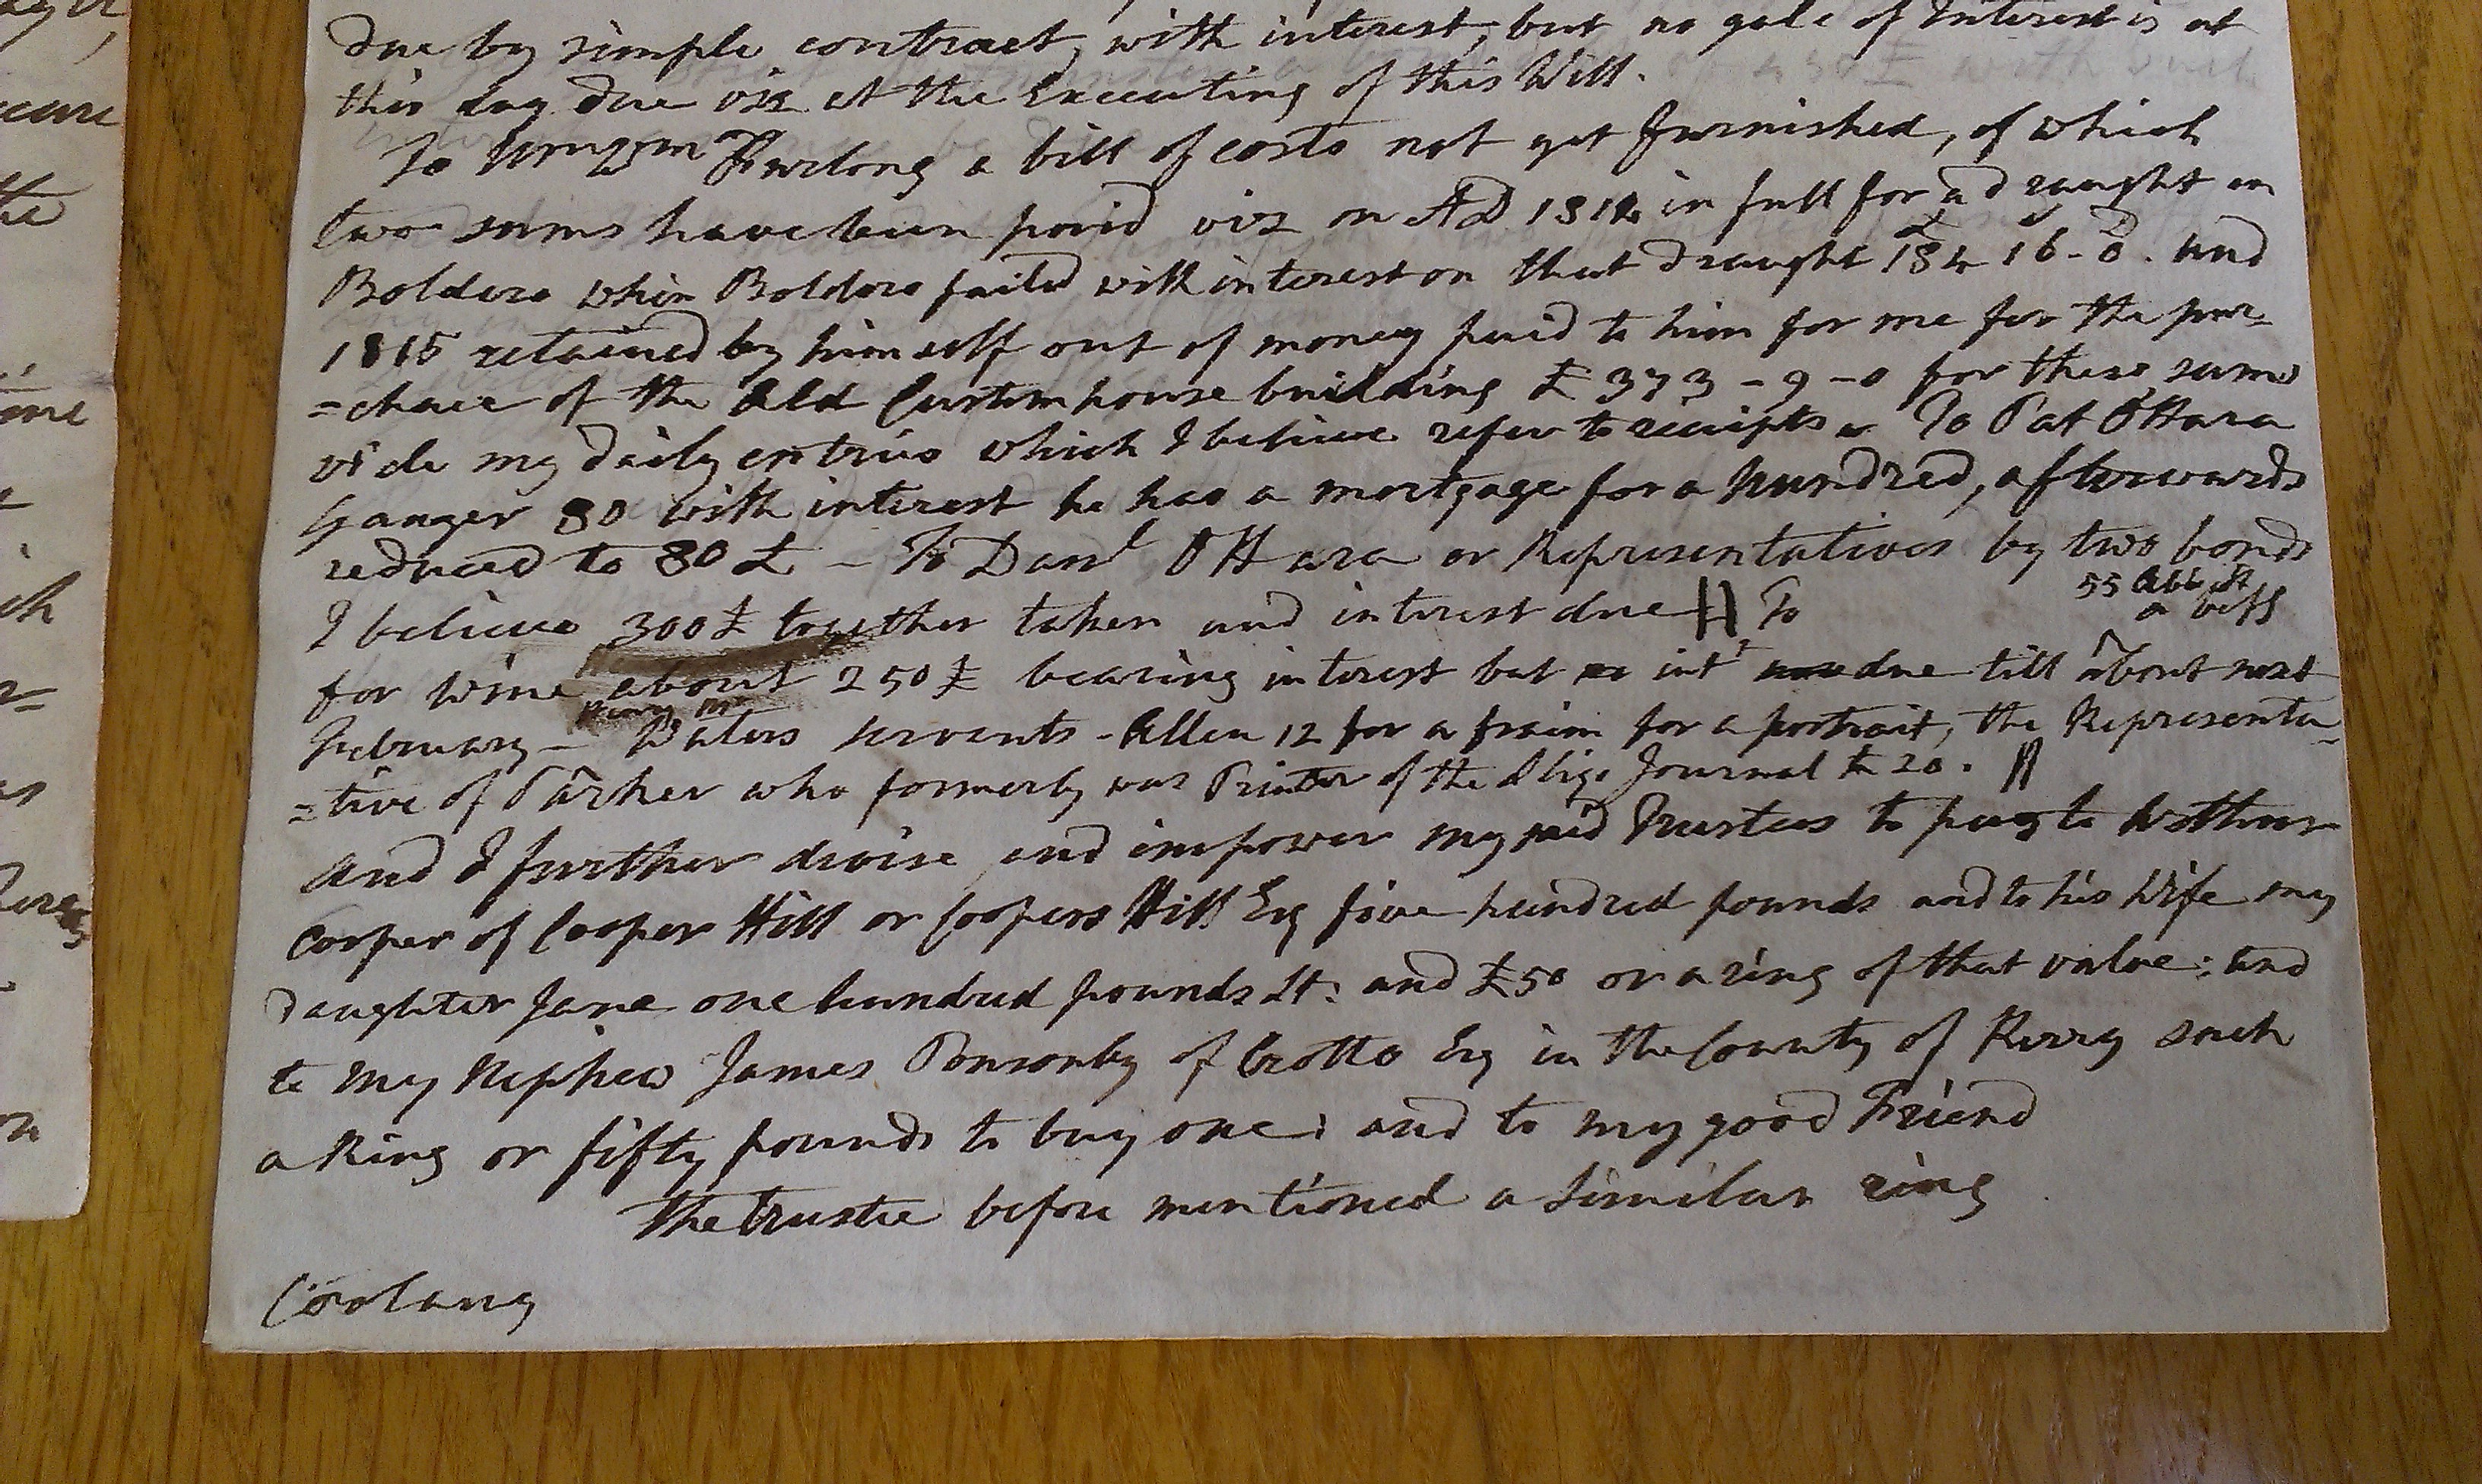 due by simple contract, with interest, but no gale of Interest is at
this day due viz at the Executing of this Will.
To Furlong a bill of costs not yet furnished, of which
two sums have been paid viz on AD 1812 in full for a draught on
Boldero when Boldero failed with interest on that draught £184 16 - 8. and
1815 retained by himself out of money paid to him for me for the pur-
=chace of the Old Custom house building £373 - 9 - 0 for these sums
vide my daily entries which I believe refer to receipts. To Pat O'Hara
Ganger 80 with interest he has a mortgage for a hundred, afterwards
reduced to 80£ - To Danl O'Hara or Representatives by two bonds
I believe 300£ together taken and interest due To
55 Abb St
for wine about 250£ bearing interest but intt due till about next
February - Waters servents - Allen 12 for a fraim for a portrait, the Representa
=tive of Parker who formerly was Printer of the Sligo Journal £20.
And I further devise and impower my said Trustees to pay to Arthur
Cooper of Cooper Hill or Coopers Hill Esq five hundred pounds and to his Wife my
daughter Jane one hundred pounds St: and £50 or a ring of that value: and
to my Nephew James Ponsonby of Crotto Esq in the County of Kerry such
a Ring or fifty pounds to buy one: and to my good Friend
the trustee before mentioned a similar ring
Coolany